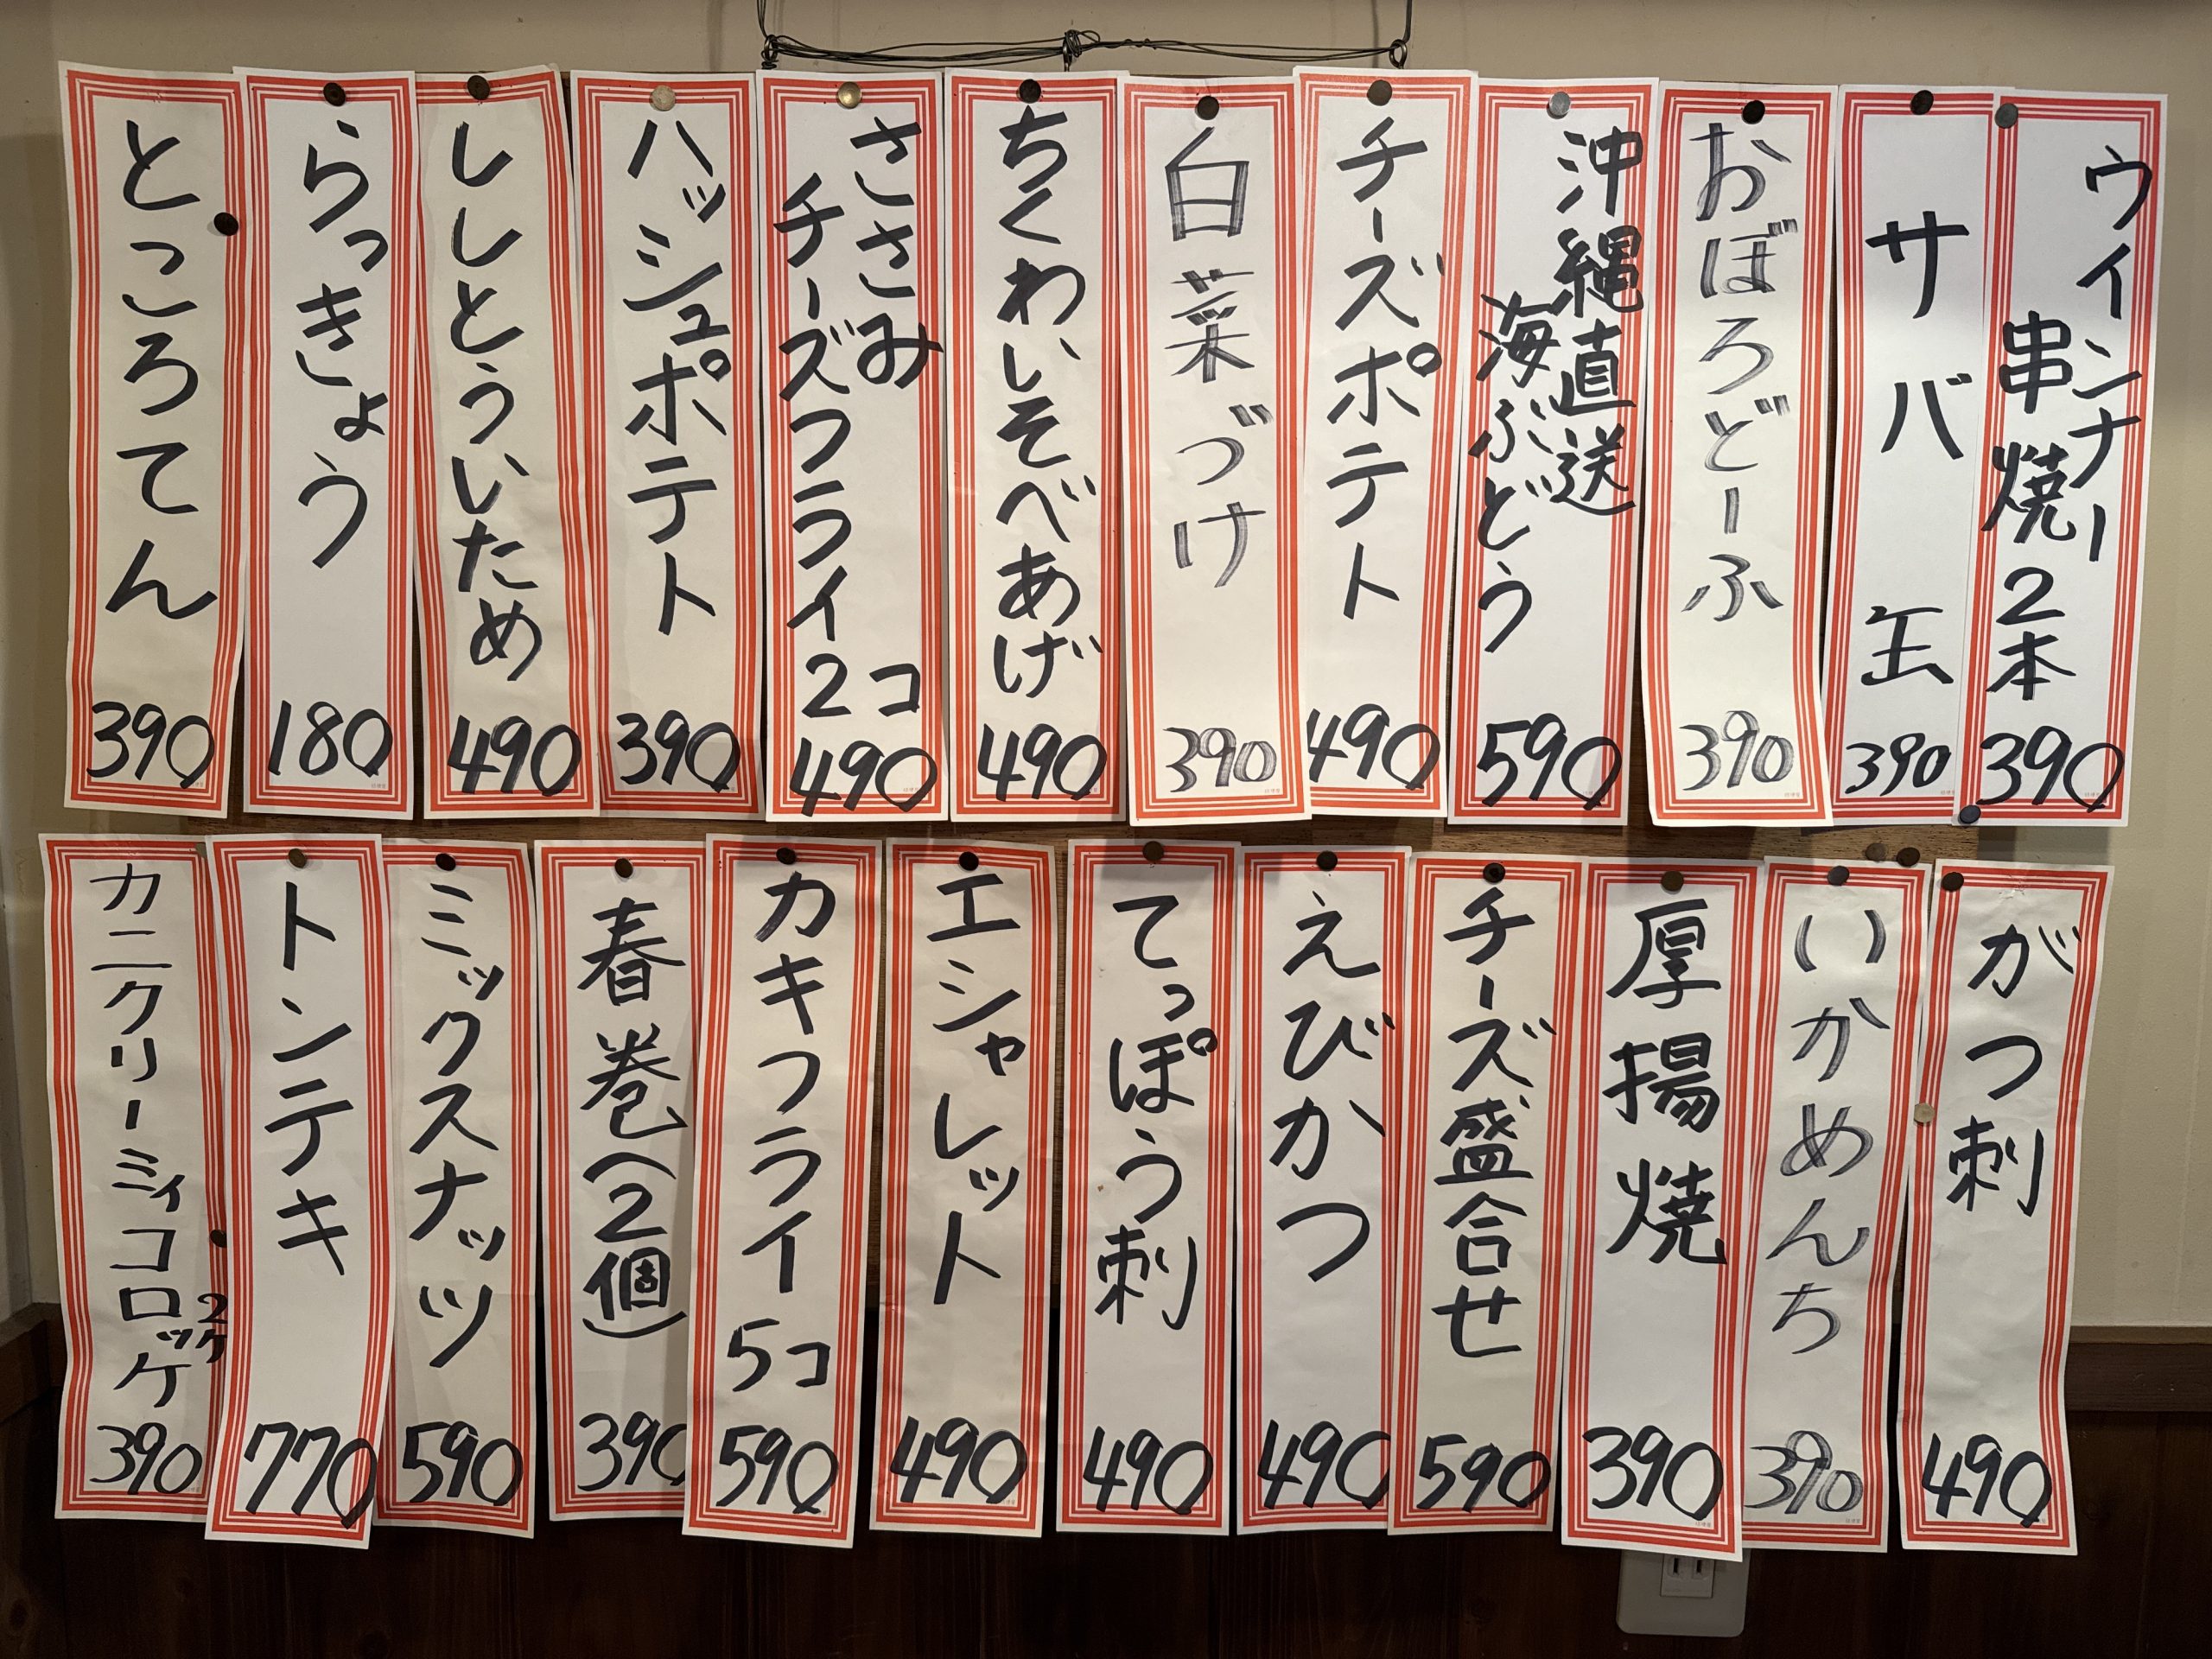 ウインナー
串焼2本
390
サバ缶
390
おぼろどーふ
390
沖縄直送
海ぶどう
590
チーズポテト
490
白菜づけ
390
ちくわいそべあげ
490
ささみ
チーズフライ2コ
490
ハッシュポテト
390
ししとういため
490
らっきょう
180
ところてん
390
がつ刺
490
いかめんち
390
厚揚焼
390
チーズ盛合せ
590
えびかつ
490
てっぽう刺
490
エシャレット
490
カキフライ5コ
590
春巻(2個)
390
ミックスナッツ
590
トンテキ
770
カニクリーミィコロッケ
2ケ
390